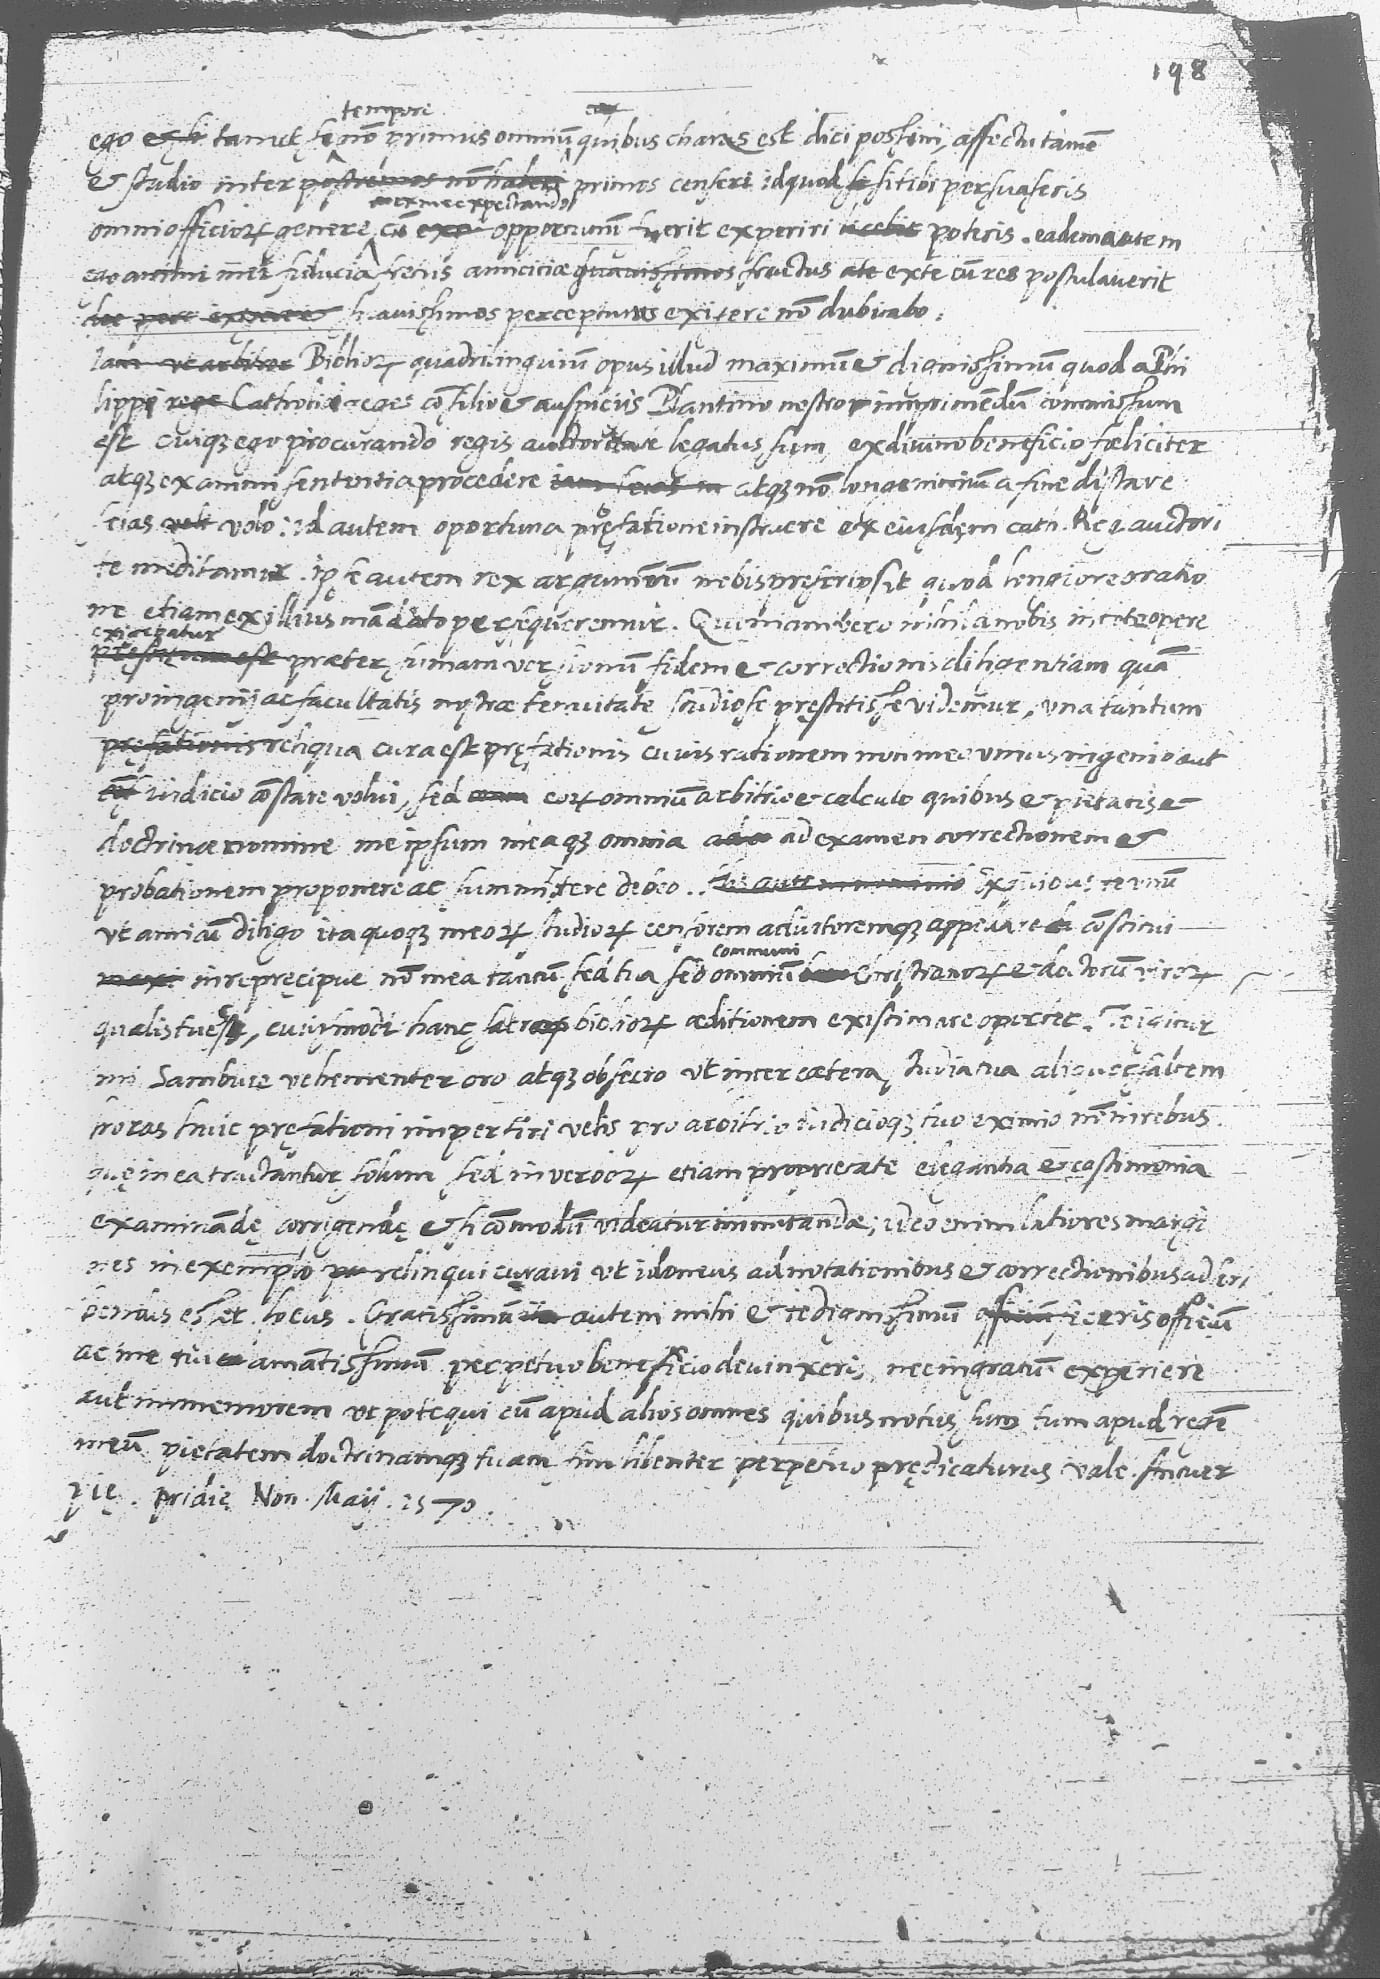 198
tempore
ego tametsi nõ primus omniũ quibus charus est dici possim, affectu tamẽ
& studio inter postremos nõ haberi primos censeri idquod si tibi persuaseris
a me expectando
omni officiorꝝ genere, cũ opportunũ fuerit experiri licebit poteris. eadem autem
ego animi mei fiducia fretus amicitiæ suavissimos fructus ex te cũ res postulaverit
suavissimos percepturus existere nõ dubitabo.
Iam ut arbitror Bibliorꝝ quadrilinguiũ opus illud maximũ & dignissimũ quod a Phi
lippi rege Catholici reges cõsilio & auspiciis Plantino nostro imprimendũ commissum
est cuiq; ego procurando regis auctoritate legatus sum, ex divino beneficio fœliciter
atq; ex animi sententia procedere iam scias atq; nõ longe nimiũ a fine distare
scias velt volo: id autem oportuna pręfatione instruere ex eiusdem cath. Reg. auctori
te meditamur. ipse autem rex argumentũ nobis pręscripsit quod longiore oratio
ne etiam ex illius mãdato persequeremur. Quoniam vero nihil a nobis in toto opere
exigebatur
præstitum est præter summam versionum fidem & correctionis diligentiam quã
pro ingenij ac facultatis nostræ tenuitate studiose pręstitisse videmur, una tantum
pręfationis reliqua cura est pręfationis cuius rationem non meo unius ingenio aut
iudicio cõstare volui, sed eorꝝ omniũ arbitrio & calculo quibus & pietatis &
doctrinæ nomine me ipsum meaq; omnia ad examen correctionem &
probationem proponere ac summittere debeo. Ex quibus te unũ
ut amicũ diligo ita quoq; meorꝝ studiorꝝ censorem adiutoremq; appellare cõstitui
communi
in re pręcipue nõ mea tantũ sed tua sed omnium Christianorꝝ & doctorũ virorꝝ
qualis tu es, cuiusmodi hanc sacrorꝝ bibliorꝝ æditionem existimare oportet. Te igitur
mi Sambuce vehementer oro atq; obsecro ut inter cætera studia tua aliquas saltem
horas huic pręfationi impertiri velis pro arbitrio iudicioq; tuo eximio nõ in rebus
quę in ea tractantur solum sed in verborꝝ etiam proprietate elegantia & castimonia
examinandę corrigendę & si cõmodũ videatur immutandæ; ideo enim latiores margi
nes in exemplo relinqui curavi ut idoneus adnotationibus & correctionibus adscri
bendis esset locus. Gratissimũ autem mihi & te dignissimũ officium feceris officiũ
ac me tui amãtissimũ perpetuo beneficio devinxeris, nec ingratũ experiere
aut immemorem utpote qui cũ apud alios omnes quibus notus sum tum apud regẽ
meũ pietatem doctrinamq; tuam sim libenter perpetuo prędicaturus. vale. Antuer
pię. pridie Non. Maij. 1570.